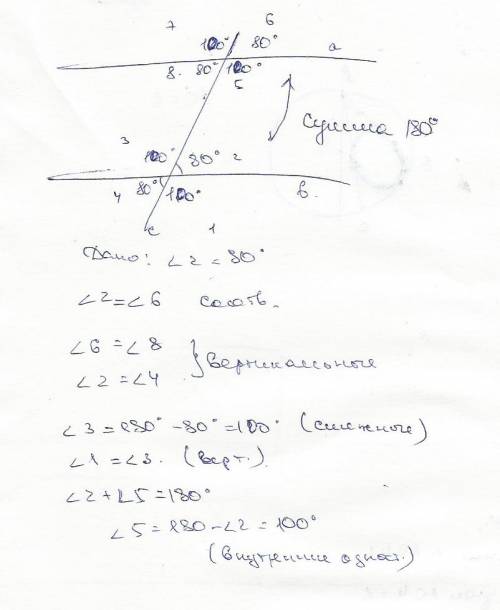 7 6
100° 80° a
8. 80° 100°
5
Сумма 180°
3
100° 80° 2
4 80° 100° в.
c 1
Дано: ∠2 = 80°
∠2 = ∠6 соотв.
∠6 = ∠8
∠2 = ∠4 } Вертикальные
∠3 = 180° - 80° = 100° (смежные)
∠1 = ∠3. (верт.)
∠2 + ∠5 = 180°
∠5 = 180 - ∠2 = 100°
(внутренние одност.)